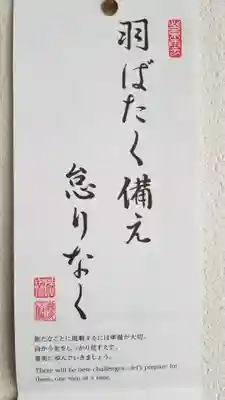 羽ばたく備え
怠りなく
新たなことに挑戦するには準備が大切。
着実に歩んでいきましょう。
There will be new challenges—let's prepare for
them, one step at a time.